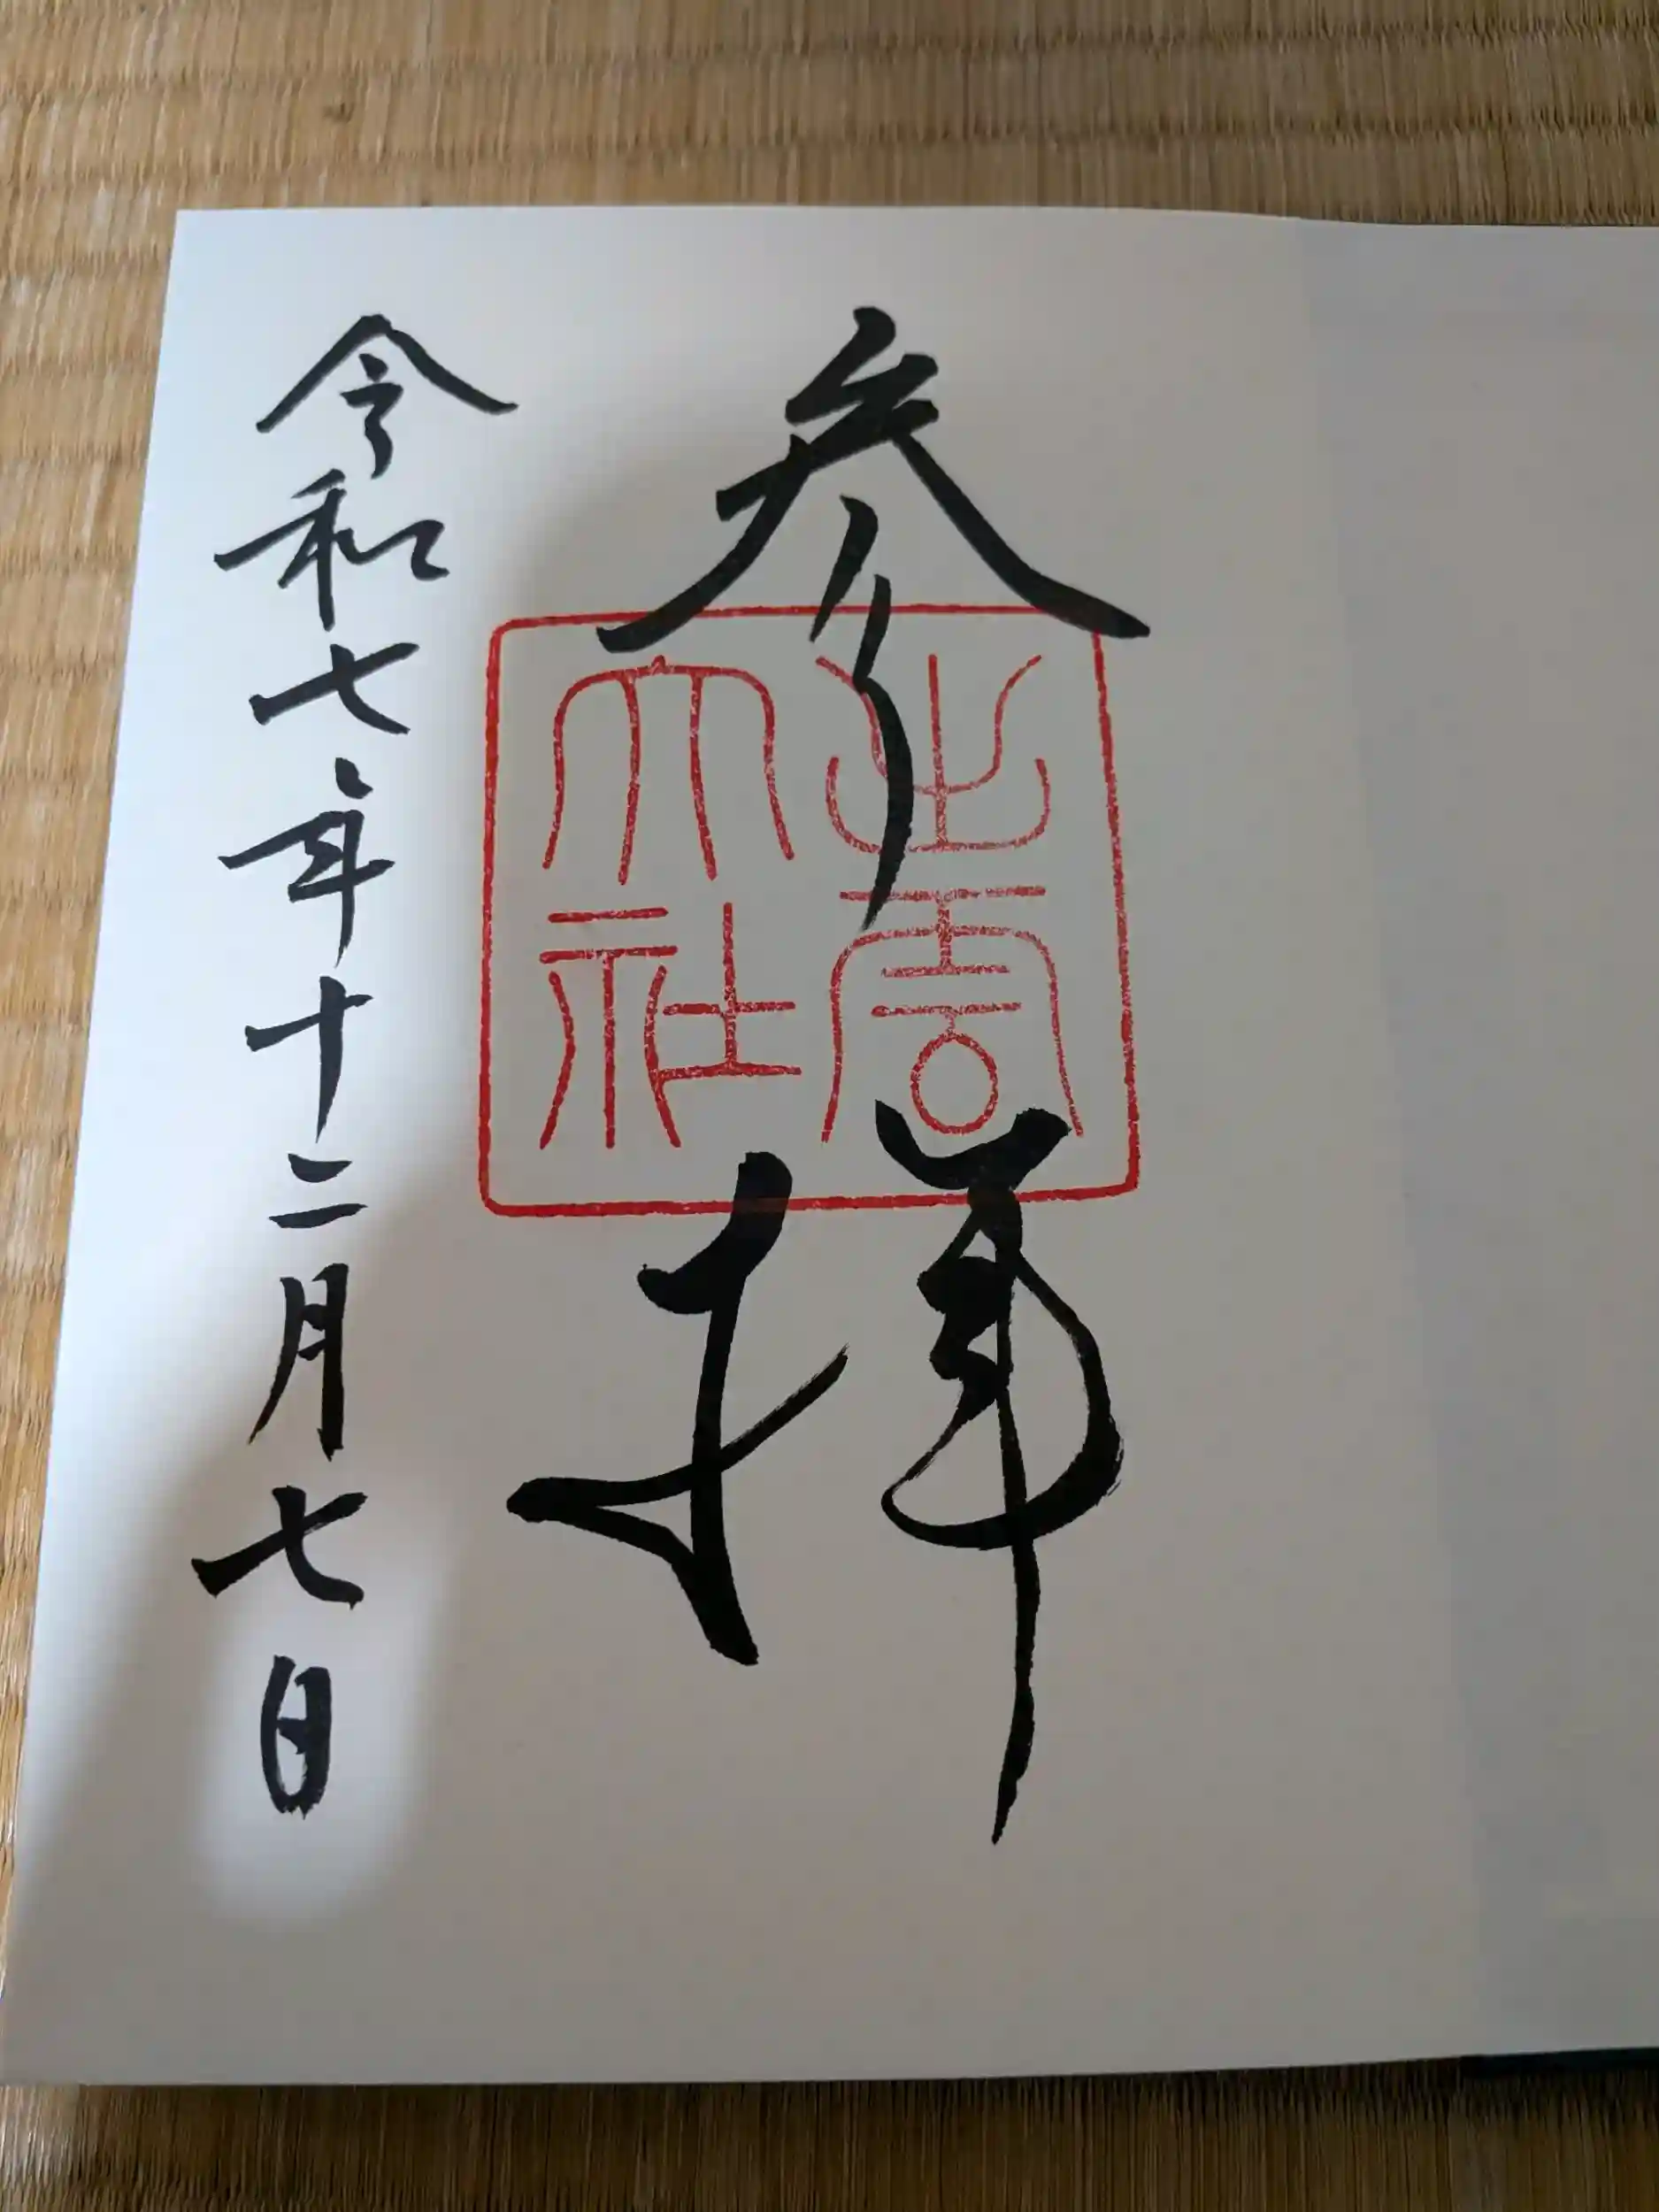 参拝
出雲
大社
令和七年十二月七日